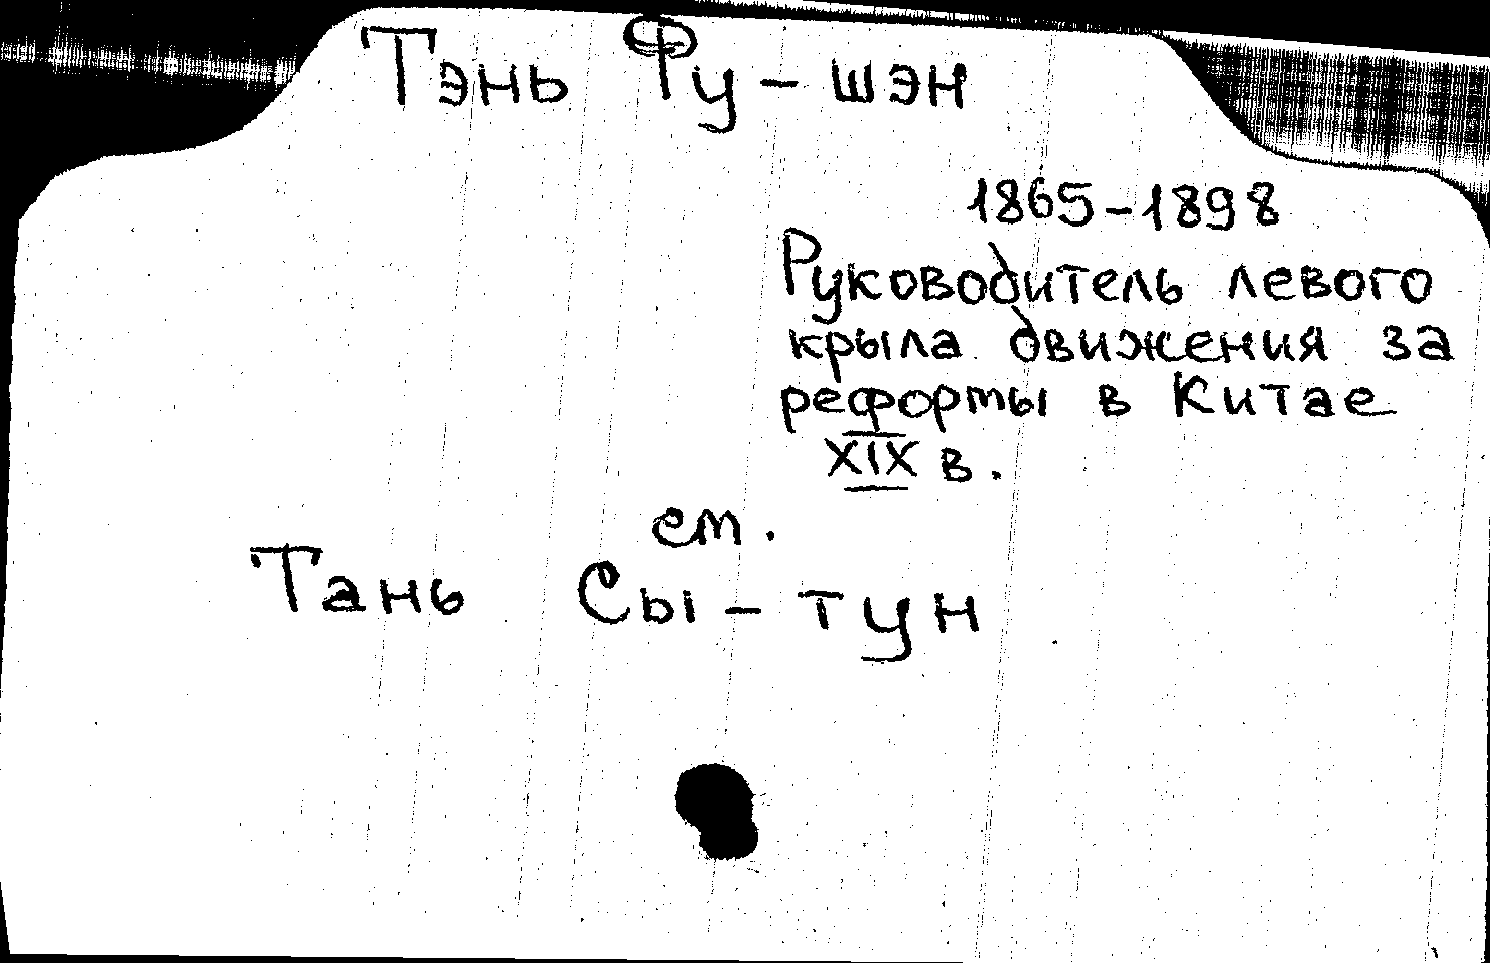 Тэнь Фу-шэн
1865-1898
Руководитель левого
крыла движения за
реформы в Китае
XIX в.
см.
Тань Сы-тун